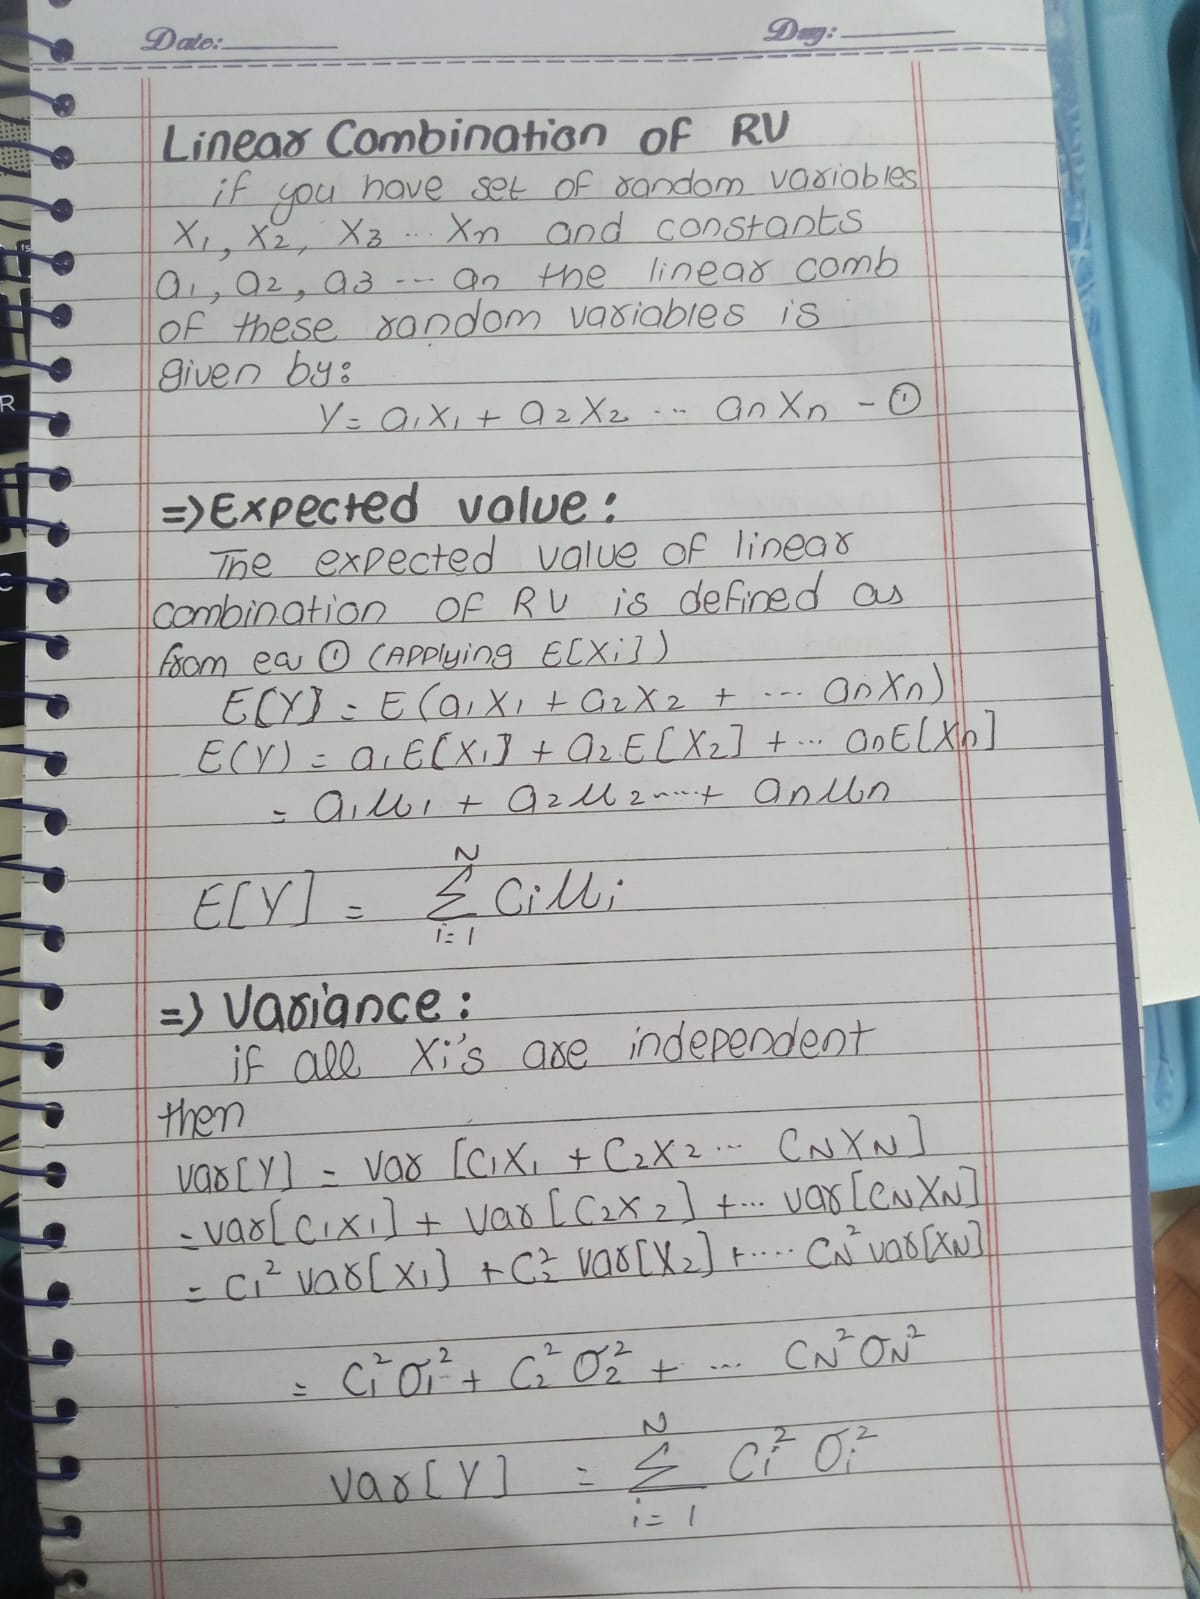 Date: Day:
Linear Combination of RV
if you have set of random variables
X₁, X₂, X₃ ... Xn and constants
a₁, a₂, a₃ --- an the linear comb
of these random variables is
given by:
Y = a₁X₁ + a₂X₂ ... anXn - ①
=> Expected value:
The expected value of linear
combination of RV is defined as
from eq ① (Applying E[Xi])
E[Y] = E(a₁X₁ + a₂X₂ + ... anXn)
E(Y) = a₁E[X₁] + a₂E[X₂] + ... anE[Xn]
= a₁μ₁ + a₂μ₂ ....+ anμn
N
E[Y] = Σ Ciμi
i=1
=> Variance:
if all Xi's are independent
then
var[Y] = var [C₁X₁ + C₂X₂ ... CNXN]
= var[C₁X₁] + var[C₂X₂] + ... var[CNXN]
= C₁² var[X₁] + C₂² var[X₂] + .... CN² var[XN]
= C₁²σ₁² + C₂²σ₂² + ... CN²σN²
N
var[Y] = Σ Ci² σi²
i = 1